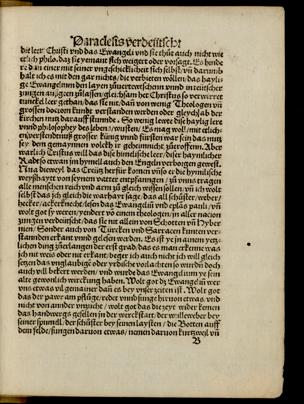 Paraclesis verdeütscht
die leer Christi vnd das Ewangeli vnd sie thue auch nicht wie
etlich philo. daz sye yemant sich weigert oder vorsagt. Es hinde
re dan einer mit seiner vngeschicklichet sich selbst/ vñ darumb
halt ich es mit den gar nichts/ die verbieten wollen/ das haylig
ge Ewangelium den layen zůuerteütschenn vnnd in teütscher
zungen zulassen/ gleich sam het Christus so verwirret
tunckel leer gethan/ das sie nit/ dañ von wenig Theologen vñ
grossen doctorn kundt verstanden werden oder gleych sam der
kirchen nun darauff stunnde. So wenig leret diese haylig lere
vnnd philosophy des leben/ wusten/ Es mag woll/ mit etlich
en verstendnuß grosser Künig vnnd fürsten war sein das man
sey dem gemaynen volck yr geheimnicht zueroffnen. Aber
warlich Christus will das dise himelische leer/ diser haymlicher
Radt so etwan jm hymell auch den Engeln verborgen gewest.
Nun dieweyl das Creütz
weyßheyt von seynem vatter entpfangen/ zů vnns tragen
alle menschen reich vnd arm zů gleich wissen sollen/ vñ ich wolt
selbst das ich gleich die warhayt sage/ das all schůster/ weber/
hecker/ ackerknecht lesen das Ewangeliũ vnd epłas pauli/ vñ
wolt got sy weren/ yendert võ einem theologen/ jn aller nacion
zungen verdeütscht/ das sie nit allein von Schotten vñ Hyber
nien/ Sonder auch von Türcken vnd Sarracen kunten ver
standen erkant vnnd gelesen werden. Es ist ye in ainem yetz
lichen ding zů erlangen der erst grad/ das es man erkenne was
jch nit weis oder nit erkant/ beger ich auch nicht ich will gleich
setzen das vnglaubige oder yrdische vol achten so wurdñ doch
auch vill bekert werden/ vnd wurde das Ewangelium ye sein
alte gewonlich wirckung haben. Wolt got dz Ewangeliũ wer
vns etwas vil gemainer dañ es bey vnser zeiten ist. Wolt got
das der pawr am pflüge/ redet vnnd sunge hiruon etwas. vnd
nicht von ander vnzucht/ wolt got das die zeyt vnder kemen
das handtwergs gesellen in der werckstatt/ der wille weber bey
seiner spinndl/ der schůster bey seinen laysten/ die Botten auff
dem felde/ sungen daruon etwas/ nemen daruon kurtzweil vñ
B